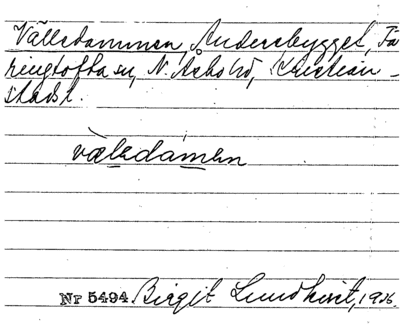 Vällsdammen, Andersbygget, Fä
ringtofta sn, N. Åsbo hd, Kristian-
stads l.
välsdámen
Nr 5494 Birgit Lundkvist, 1936